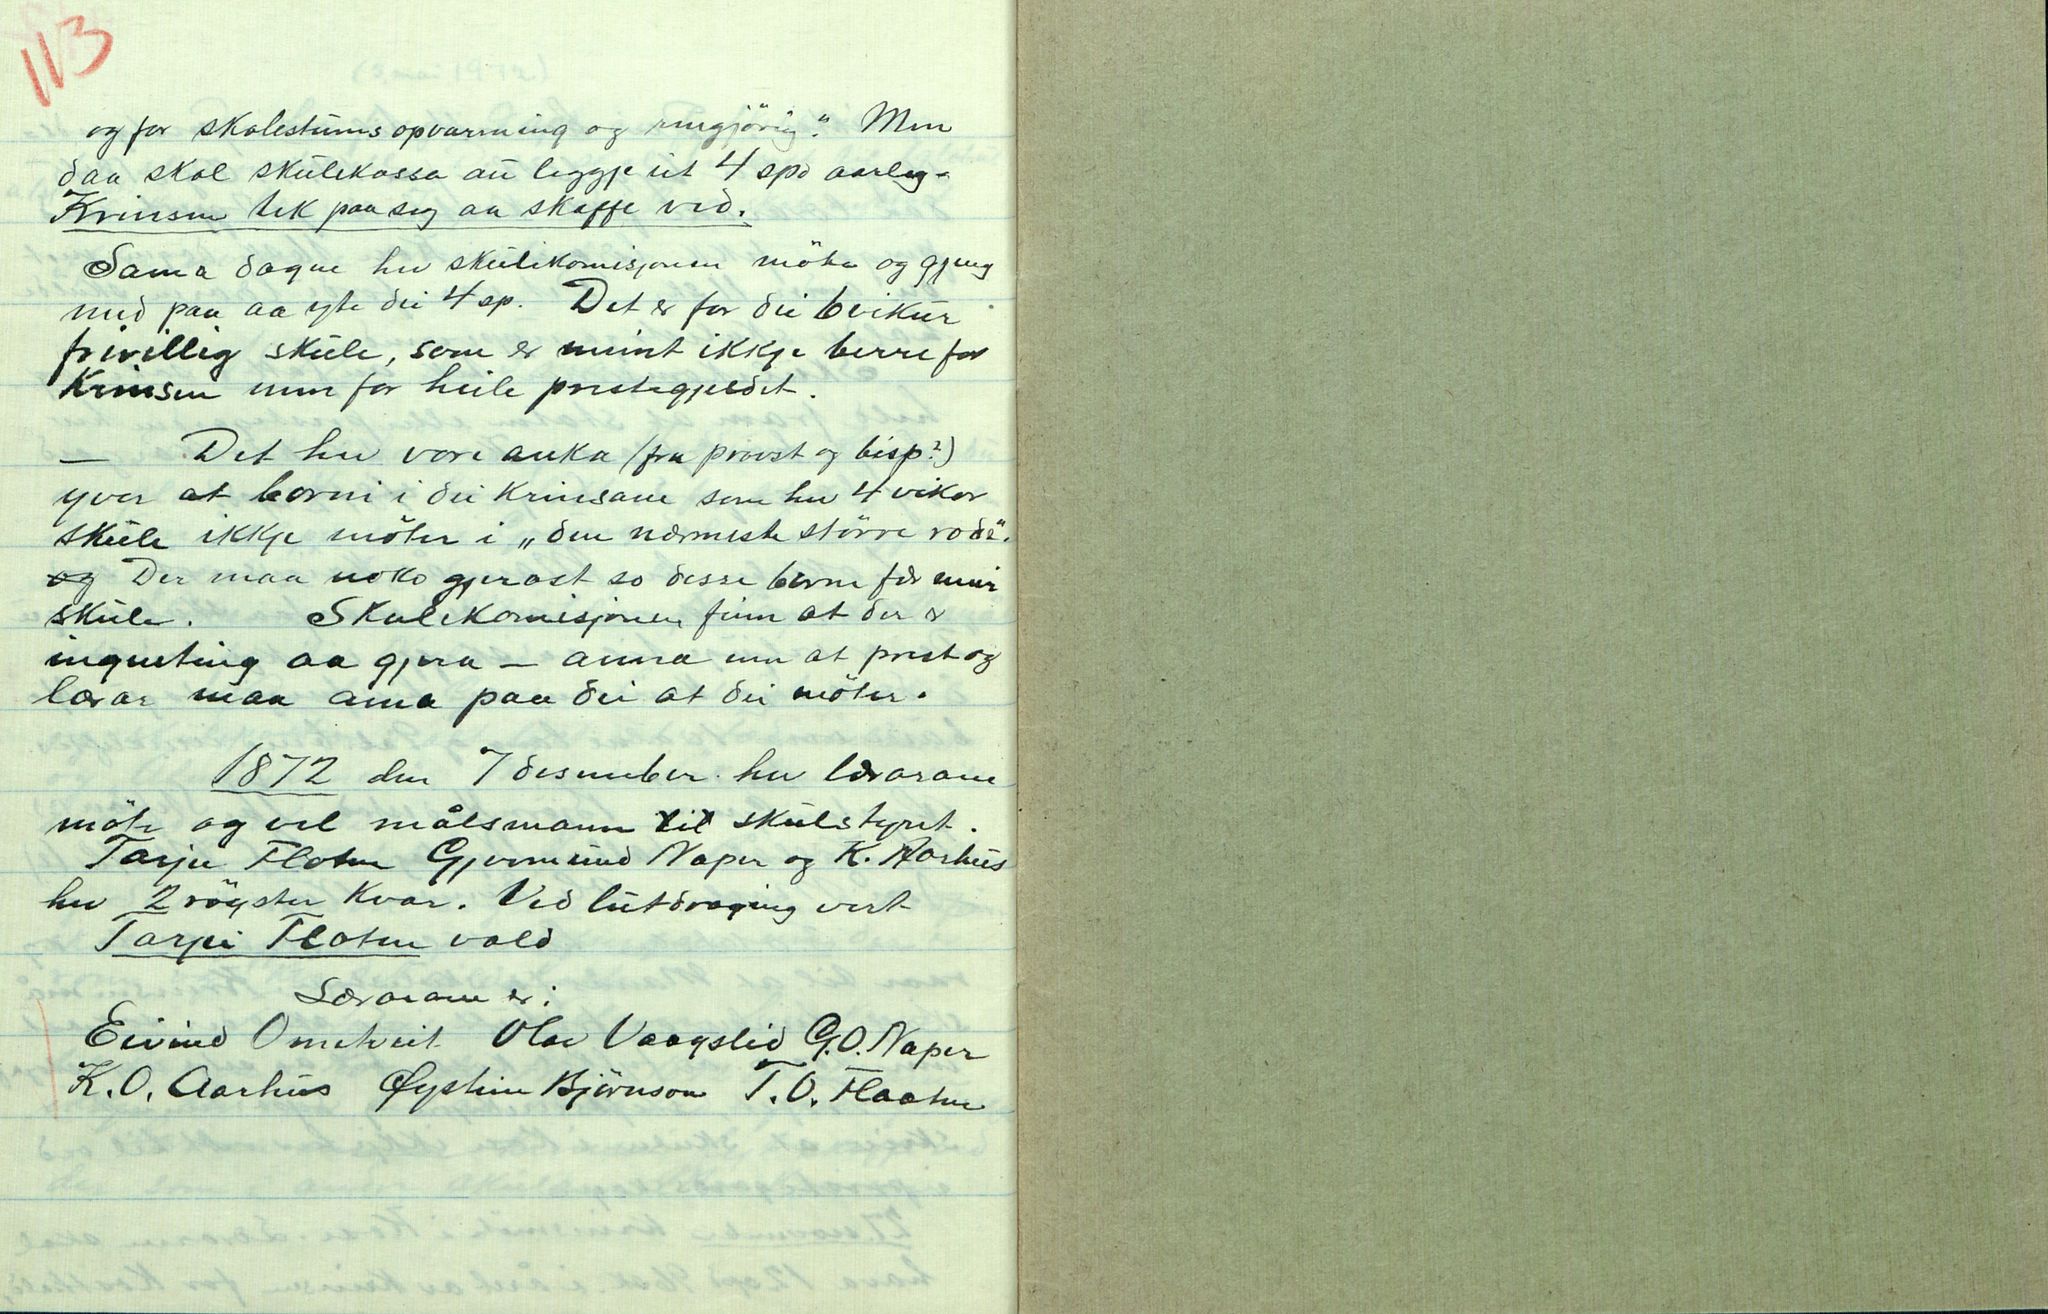 113
og for skolestuens opvarmning og rengjöring". Men
daa skal skulekassa au leggje ut 4 spd aarleg.
Krinsen tek paa seg aa skaffe ved.
Sama dagen hev skulekomisjonen möte og gjeng
med paa aa yte dei 4 sp. Det er for dei 6 vikur
frivillig skule, som er meint ikkje berre for
Krinsen men for heile prestegjeldet.
— Det hev vore anka (fra provst og bisp?)
yver at borni i dei krinsane som hev 4 vikor
skule ikkje möter i „den nærmeste större rode".
og Der maa noko gjerast so desse borne fær meir
skule. Skulekomisjonen finn at der er
ingenting aa gjera – anna enn at prest og
lærar maa ama paa dei at dei möter.
1872 den 7 desember hev lærarane
möte og vel målsmann til skulstyret.
Tarjei Flaten Gjermund Naper og K. Aarhus
hev 2 röyster kvar. Ved lutdraging vert
Tarjei Flaten vald
Lærarane er:
Eivind Omtveit Olav Vaagslid G.O. Naper
K.O. Aarhus Øystein Björnson T.O. Flaaten